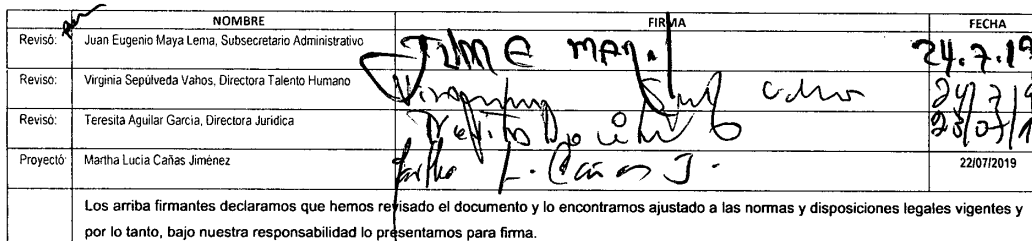 NOMBRE FIRMA FECHA
Revisó: Juan Eugenio Maya Lema, Subsecretario Administrativo 24.7.19
Revisó: Virginia Sepúlveda Vahos, Directora Talento Humano 24/7/19
Revisó: Teresita Aguilar García, Directora Jurídica 23/07/1
Proyectó: Martha Lucía Cañas Jiménez Martha L. Cañas J. 22/07/2019
Los arriba firmantes declaramos que hemos revisado el documento y lo encontramos ajustado a las normas y disposiciones legales vigentes y
por lo tanto, bajo nuestra responsabilidad lo presentamos para firma.